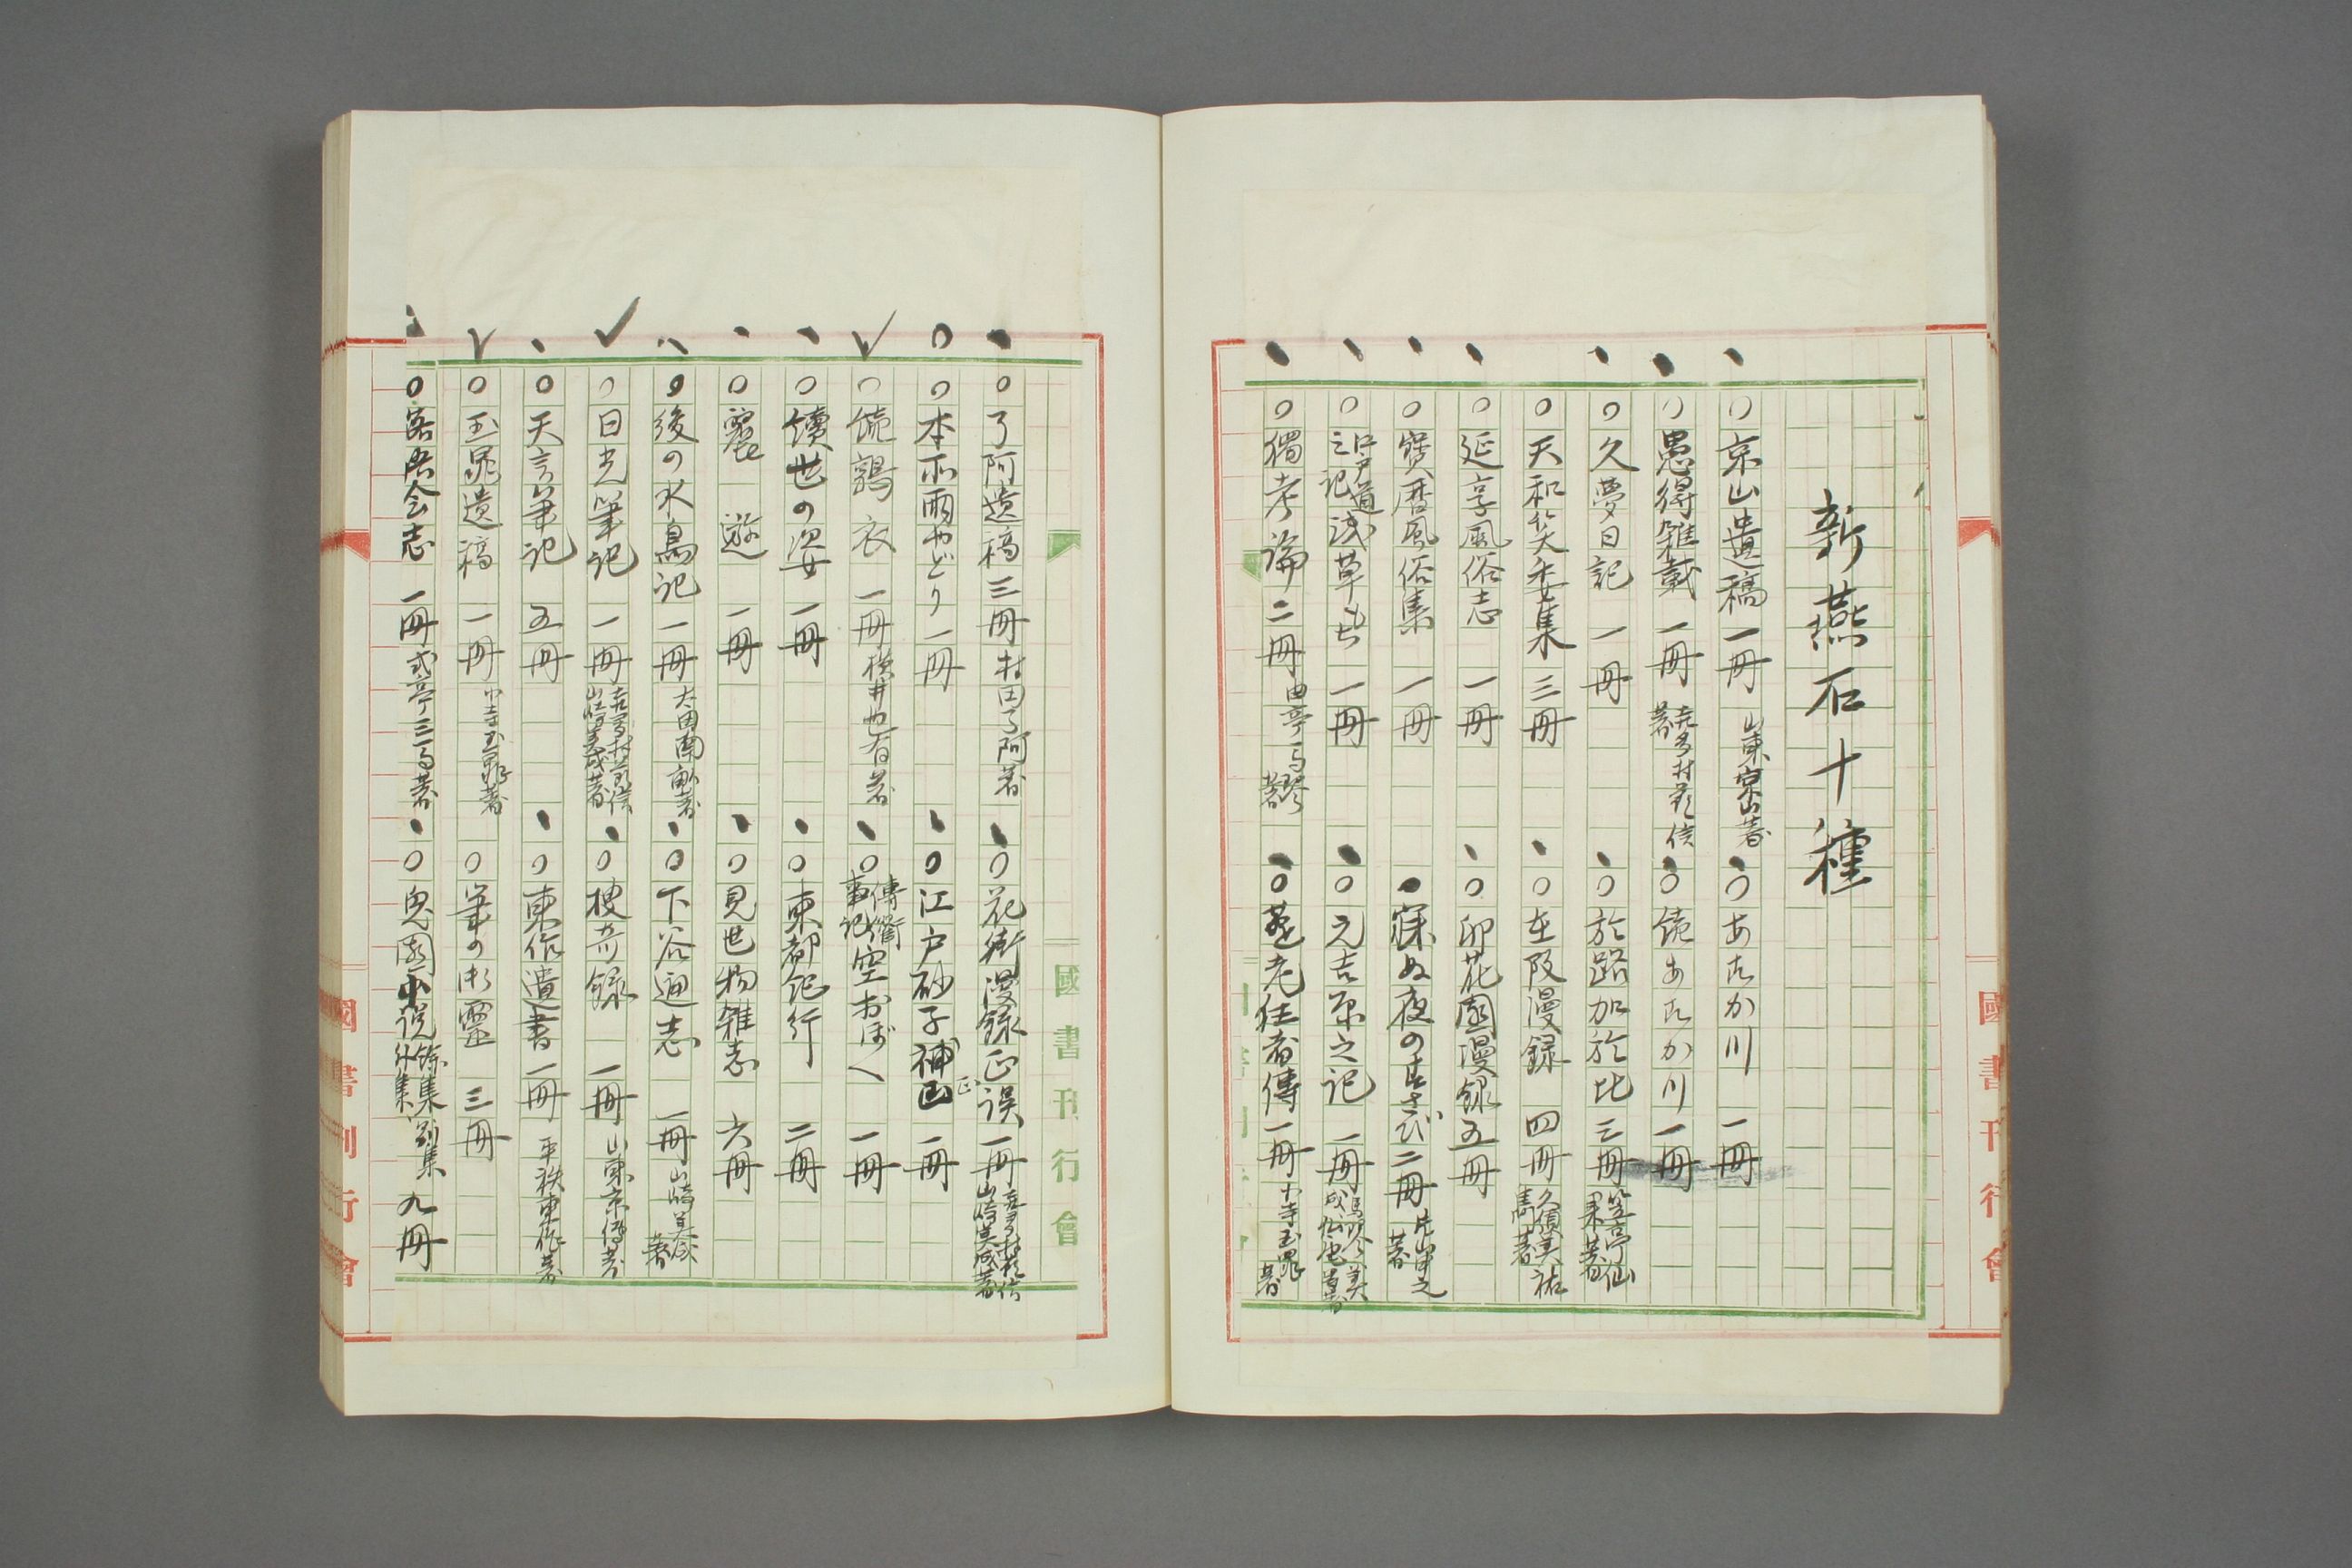 新燕石十種
○京山遺稿 一冊 山東京山著
○あすか川 一冊
○愚得雑載 一冊 㐂多村節信著
○続あすか川 一冊
○久夢日記 一冊
○於路加於比 三冊 笠亭仙果著
○天和笑委集 三冊
○在阪漫録 四冊 久須美祐雋著
○延享風俗志 一冊
○卯花園漫録 五冊
○寶暦風俗集 一冊
寐ぬ夜のすさび 二冊 片山甲之著
○江戸道之記 浅草もち 一冊
○元吉原之記 一冊
○獨考論 二冊 曲亭馬琴著
○老狂者傳 一冊 小寺玉晁著
○了阿遺稿 三冊 村田了阿著
○花街漫録正誤 一冊 喜多村節信 山崎美成著
○本所雨やどり 一冊
○江戸砂子補正 一冊
○鶉衣 一冊 横井也有著
○傳衢事記 空おぼへ 一冊
○續世の姿 一冊
○東都紀行 二冊
○麓遊 一冊
○見世物雑志 六冊
○後の水鳥記 一冊 大田南畝著
○下谷通志 一冊 山崎美成著
○日光筆記 一冊 㐂多村節信 山崎美成著
○捜奇録 一冊 山東京傳著
○天言筆記 五冊
○東作遺書 一冊 平秩東作著
○玉晁遺稿 一冊 小寺玉晁著
○筆の 三冊
○落咄会志 一冊 式亭三馬著
○兎園小説 餘集 外集 別集 九冊
國書刊行會
國書刊行會
國書刊行會